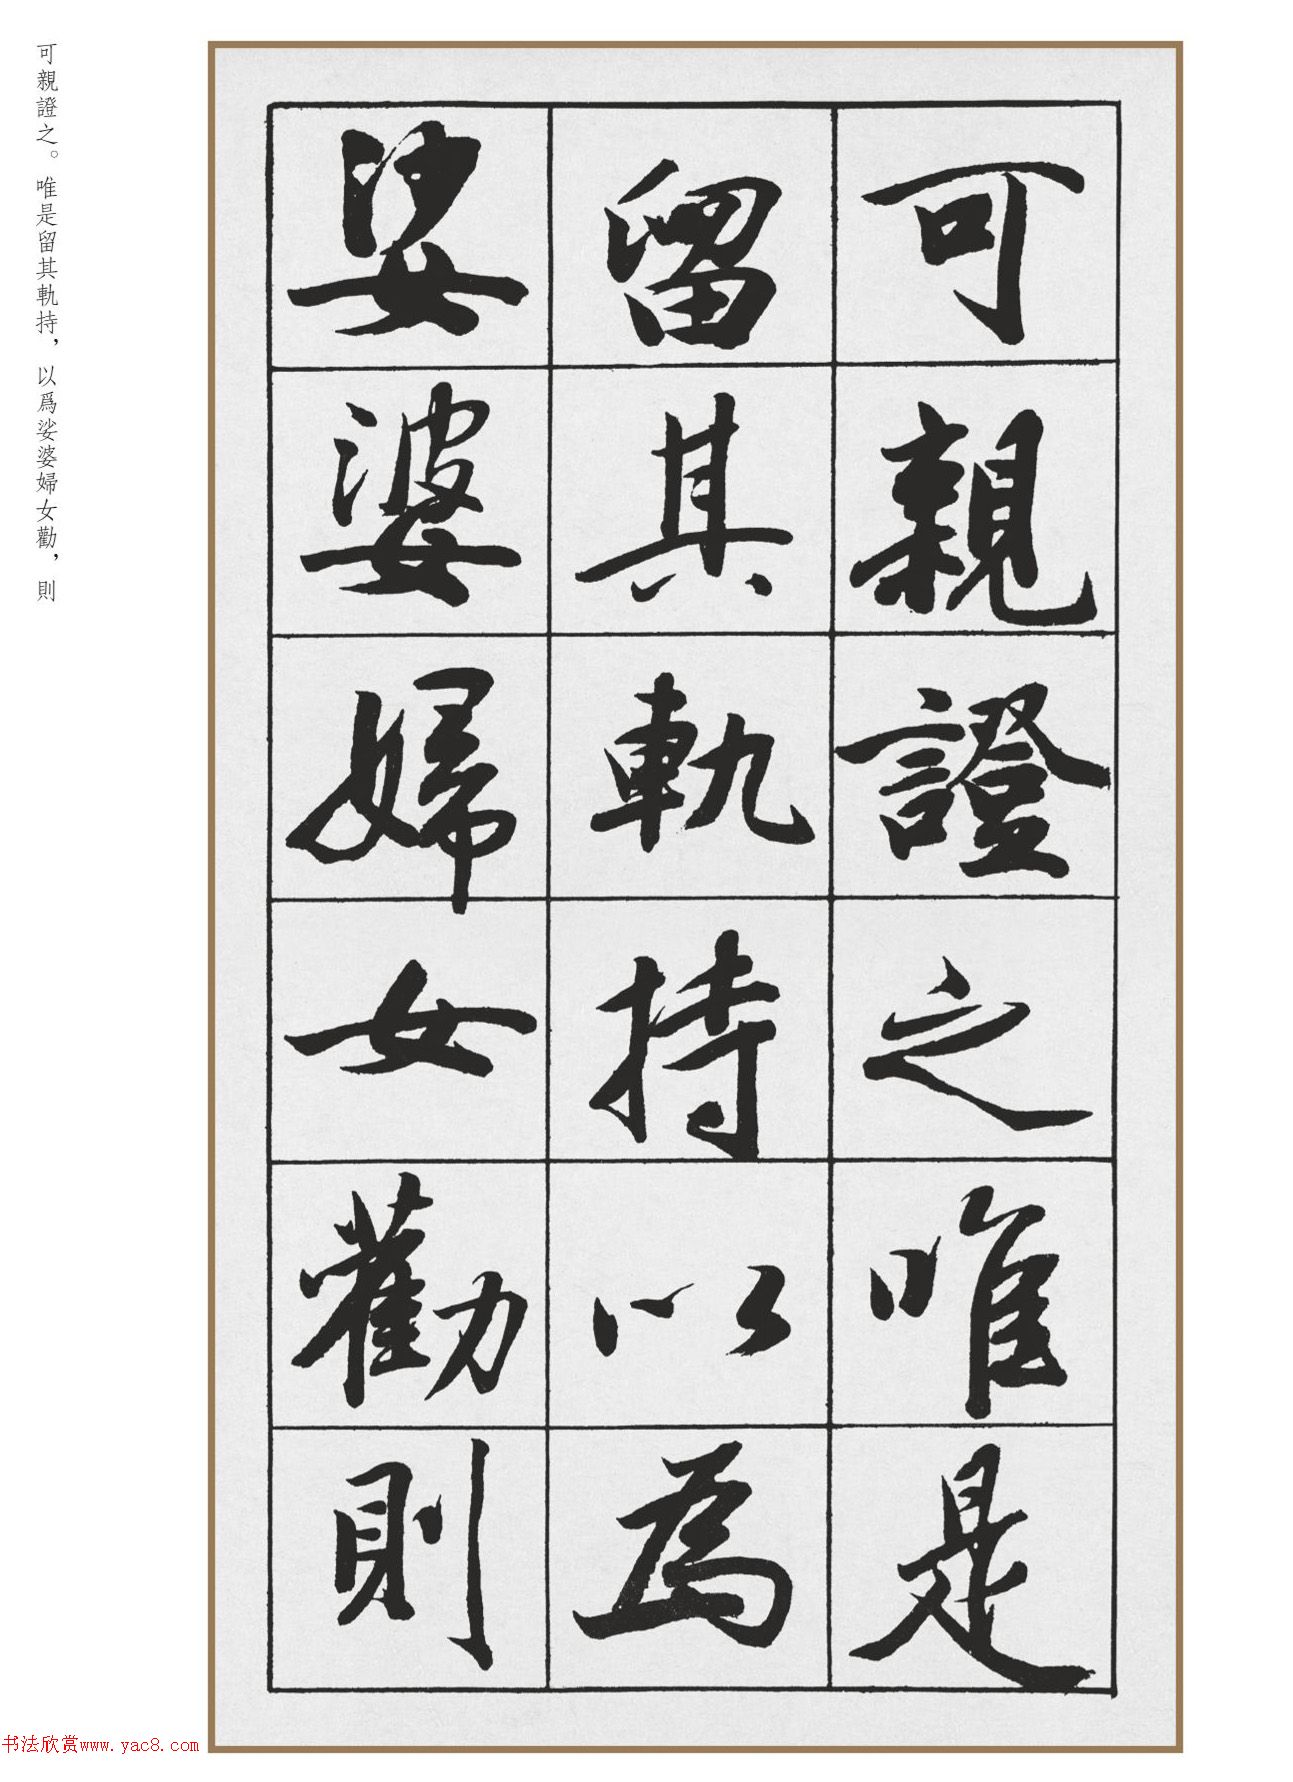 可親證之唯是
留其軌持以為
娑婆婦女勸則
可親證之。唯是留其軌持，以爲娑婆婦女勸，則
书法欣赏www.yac8.com